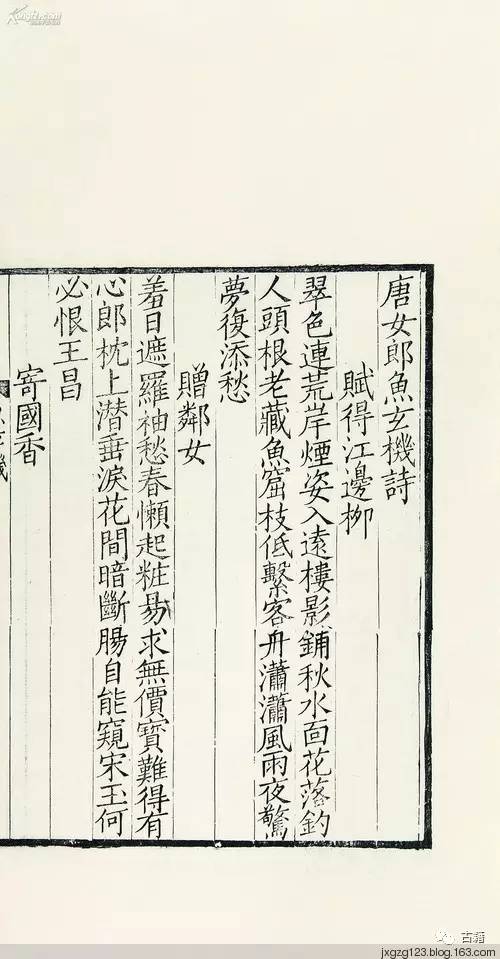 唐女郎魚玄機詩
賦得江邊柳
翠色連荒岸煙姿入遠樓影鋪秋水面花落釣
人頭根老藏魚窟枝低繫客舟瀟瀟風雨夜驚
夢復添愁
贈鄰女
羞日遮羅袖愁春懶起粧易求無價寶難得有
心郎枕上潛垂淚花間暗斷腸自能窺宋玉何
必恨王昌
寄國香
古籍
jxgzg123.blog.163.com